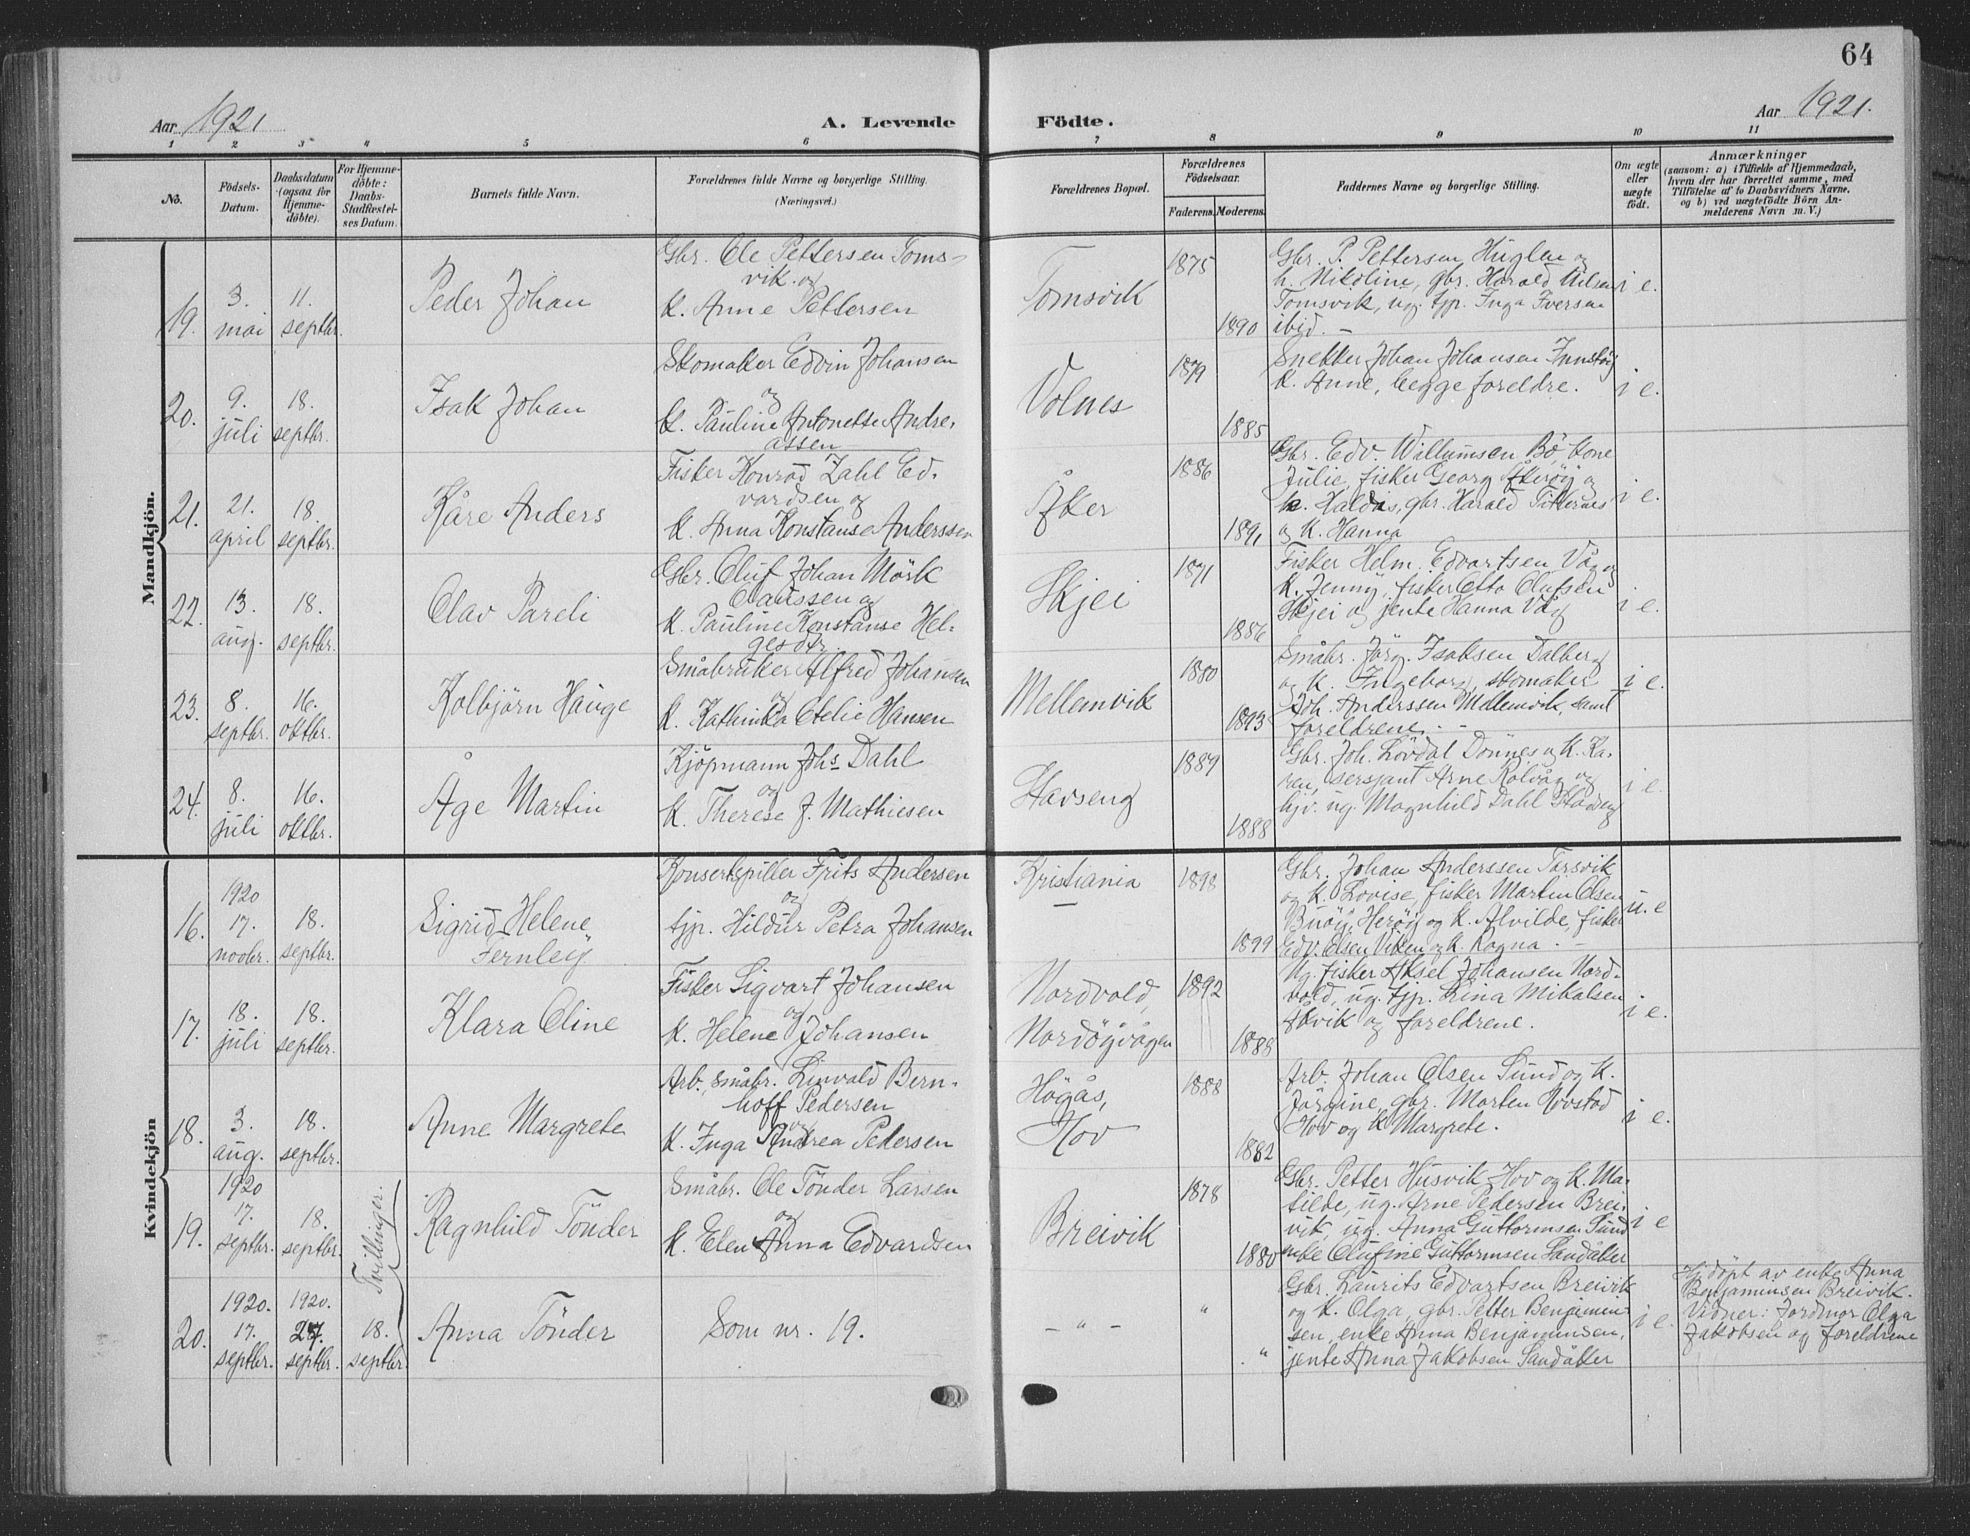 64
Aar 1921
A. Levende Födte.
Aar 1921.
1 2 3 4 5 6 7 8 9 10 11
No.
Födsels-
Datum.
Daabsdatum
(ogsaa for
Hjemme-
döbte).
For Hjemme-
döbte:
Daabs-
Stadfæstel-
ses Datum.
Barnets fulde Navn.
Forældrenes fulde Navne og borgerlige Stilling.
(Næringsvei.)
Forældrenes Bopæl.
Forældrenes
Födselsaar.
Faderens. Moderens.
Faddernes Navne og borgerlige Stilling.
Om ægte
eller
uægte
født.
Anmærkninger
(saasom: a) i Tilfælde af Hjemmedaab,
hvem der har forrettet samme, med
Tilföielse af to Daabsvidners Navne,
og b) ved uægtefödte Börn An-
melderens Navn m. V.)
Mandkjön.
19.
3.
mai
11.
septbr.
Peder Johan
Gbr. Ole Pettersen Toms-
vik og
K. Anne Pettersen
Tomsvik
1875
1890
Gbr. P. Pettersen Huglen og
h. Nikoline, gbr. Harald Nilsen
Tomsvik, ug. tjp. Inga Iversen
ibid. –
i e.
20.
9.
juli
18.
septbr.
Isak Johan
Skomaker Edvin Johansen
og
K. Pauline Antonette Andre-
assen
Volnes
1879
1885
Snekker Johan Johansen
K. Anne, begge foreldre.
i e.
21.
21.
april
18.
septbr.
Kåre Anders
Fisker Konrad Zahl Ed-
vardsen og
K. Anna Konstanse Anderssen
Åker
1886
1891
Gbr. Edv. Willumsen Bö, kone
Julie, fisker Georg Åkeröy og
k. Haldis, gbr. Harald
og K. Hanna
i e.
22.
13.
aug.
18.
septbr.
Olav Pareli
Gbr. Oluf Johan Mörk
Claussen og
K. Pauline Konstanse Hel-
gesdtr.
Skjei
1871
1886
Fisker Helm. Edvartsen Våg og
K. Jenny, fisker Otto Olufsen
Skjei og jente Hanna Våg
i e.
23.
8.
septbr.
16.
oktbr.
Kolbjörn Hauge
Småbruker Alfred Johansen
og
K. Kathinka Otelie Hansen
Mellemvik
1880
1893
Småbr. Jörg. Isaksen Dalberg
og K. Ingeborg, skomaker
Joh. Anderssen Mellemvik, samt
foreldrene. –
i e.
24.
8.
juli
16.
oktbr.
Åge Martin
Kjöpmann Johs Dahl
og
K. Therese J. Mathiesen
Stavseng
1889
1888
Gbr. Joh. Lövdal Dönnes og K. Ka-
ren, sersjant Arne Rölvåg og
hjv. ug. Magnhild Dahl Stavseng
i e.
Kvindekjön
16.
1920
17.
novbr.
18.
septbr.
Sigrid Helene
Fernley
Konsertspiller Frits Andersen
og
tjp. Hildur Petra Johansen
Kristiania
–
1898
1899
Gbr. Johan Anderssen Tarsvik
og K. Lovise, fisker Martin Olsen
Buöy, Heröy og K. Alvilde, fisker
Edv. Olsen Viken og K. Ragna. –
u. e
17.
18.
juli
18.
septbr.
Klara Oline
Fisker Sigvart Johansen
og
K. Helene Johansen
Nordvold,
Nordöyvågen
1892
1888
Ug. fisker Aksel Johansen Nord-
vold, ug. tjp. Lina Mikalsen
Åkvik og foreldrene.
i e.
18.
3.
aug.
18.
septbr.
Anne Margrete
Arb., småbr. Linvald Bern-
hoff Pedersen
og
K. Inga Andrea Pedersen
Högås,
Hov
1888
1882
Arb. Johan Olsen Sund og K.
Jörgine, gbr. Morten Hovstad
Hov og K Margrete.
i e.
19.
1920
17.
septbr.
18.
septbr.
Tvillinger.
Ragnhild Tönder
Småbr. Ole Tönder Larsen
og
K. Elen Anna Edvardsen
Breivik
1878
1880
Gbr. Petter Husvik, Hov og K. Ma-
tilde, ug. Arne Pedersen Brei-
vik, ug. Anna Guttormsen Sund
enke Olufine Guttormsen Sandåker
i e
20.
1920.
17.
septbr.
1920.
27.
septbr.
18.
septbr.
Anna Tönder
Som nr. 19.
– " –
"
"
Gbr. Laurits Edvartsen Breivik
og K. Olga, gbr. Petter Benjamin-
sen, enke Anna Benjaminsen,
jente Anna Jakobsen Sandåker
i e.
Hjdöpt av enke Anna
Benjaminsen Breivik.
Vidner: Jordmor Olga
Jakobsen og foreldrene